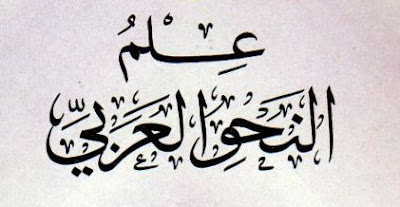 عِلْمُ
النَحْوِ العَرَبيِّ